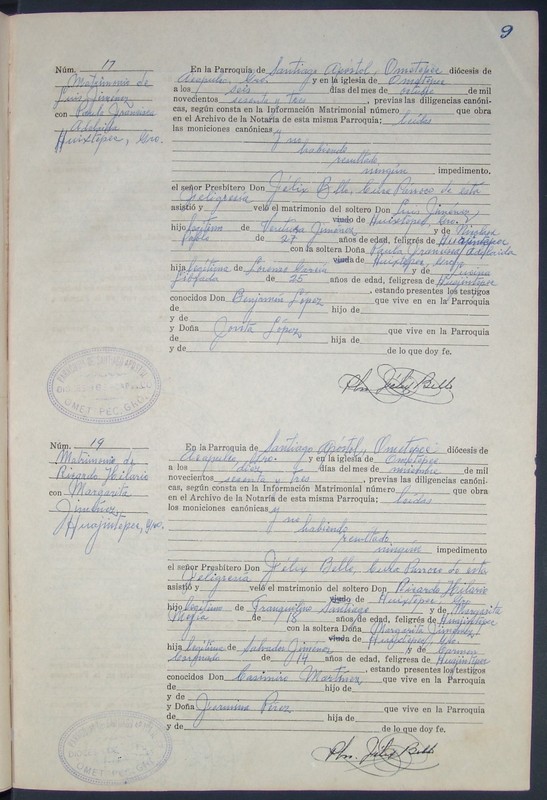 9
Núm. 17
Matrimonio de
Luis Jiménez
con Paula Francisca
Adelaida
Huixtepec, Gro.
En la Parroquia de Santiago Apóstol, Ometepec diócesis de
Acapulco, Gro. y en la iglesia de Ometepec
a los seis días del mes de octubre de mil
novecientos sesenta y tres, previas las diligencias canóni-
cas, según consta en Información Matrimonial número que obra
en el Archivo de la Notaría de esta misma Parroquia; leídas
las moniciones canónicas y no
habiendo
resultado
ningún impedimento.
el señor Presbítero Don Félix Bello, Cura Párroco de esta
Feligresía
asistió y veló el matrimonio del soltero Don Luis Jiménez,
viudo de Huixtepec, Gro.
hijo legítimo de Jiménez y de
de 27 años de edad, feligrés de
con la soltera Doña Paula Francisca Adelaida
viuda de Huixtepec,
hija legítima de Lorenzo García y de
de 25 años de edad, feligresa de
, estando presentes los testigos
conocidos Don Benjamín López que vive en en la Parroquia
de hijo de
y de
y Doña Jovita López que vive en la Parroquia
de hija de
y de de lo que doy fe.
Pbro. Félix Bello
OMETEPEC, GRO.
Núm. 19
Matrimonio de
Ricardo Hilario
con Margarita
Jiménez,
Huajintepec, Gro.
En la Parroquia de Santiago Apóstol, Ometepec diócesis de
Acapulco, Gro. y en la iglesia de Ometepec
a los diez días del mes de noviembre de mil
novecientos sesenta y tres, previas las diligencias canóni-
cas, según consta en Información Matrimonial número que obra
en el Archivo de la Notaría de esta misma Parroquia; leídas
las moniciones canónicas y
no habiendo
resultado
ningún impedimento
el señor Presbítero Don Félix Bello, Cura Párroco de esta
Feligresía
asistió y veló el matrimonio del soltero Don Ricardo Hilario
viudo de Huixtepec, Gro.
hijo legítimo de Tranquilino Santiago y de Margarita
Mejía de 18 años de edad, feligrés de Huajintepec
con la soltera Doña Margarita Jiménez,
viuda de Huajintepec, Gro.
hija legítima de Salvador Jiménez y de Carmen
de 14 años de edad, feligresa de Huajintepec
, estando presentes los testigos
conocidos Don Casimiro Martínez que vive en la Parroquia
de hijo de
y de
y Doña Herminia Pérez que vive en la Parroquia
de hija de
y de de lo que doy fe.
Pbro. Félix Bello
OMETEPEC, GRO.